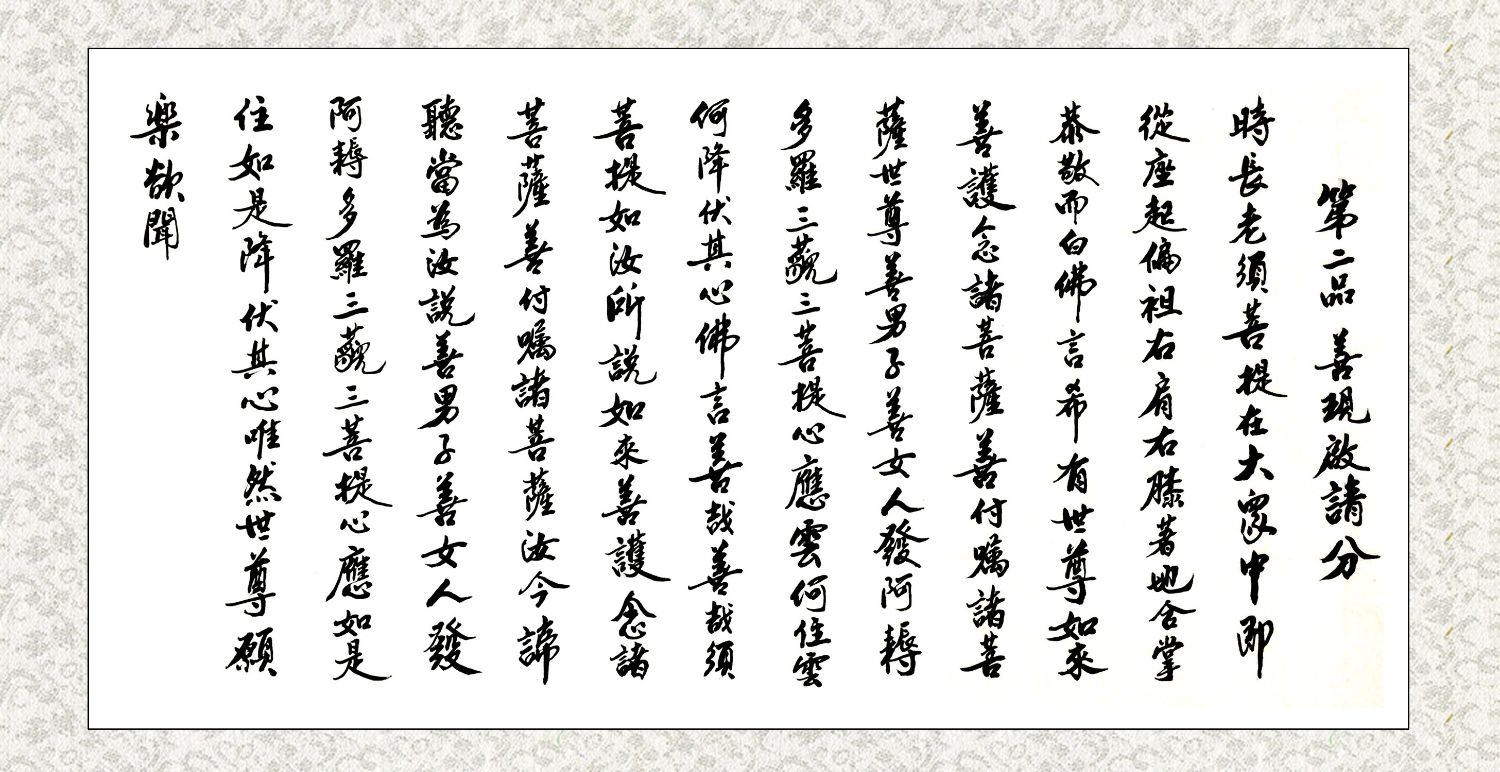 第二品 善現啟請分
時長老須菩提在大眾中即
從座起偏袒右肩右膝著地合掌
恭敬而白佛言希有世尊如來
善護念諸菩薩善付囑諸菩
薩世尊善男子善女人發阿耨
多羅三藐三菩提心應雲何住雲
何降伏其心佛言善哉善哉須
菩提如汝所說如來善護念諸
菩薩善付囑諸菩薩汝今諦
聽當為汝說善男子善女人發
阿耨多羅三藐三菩提心應如是
住如是降伏其心唯然世尊願
樂欲聞